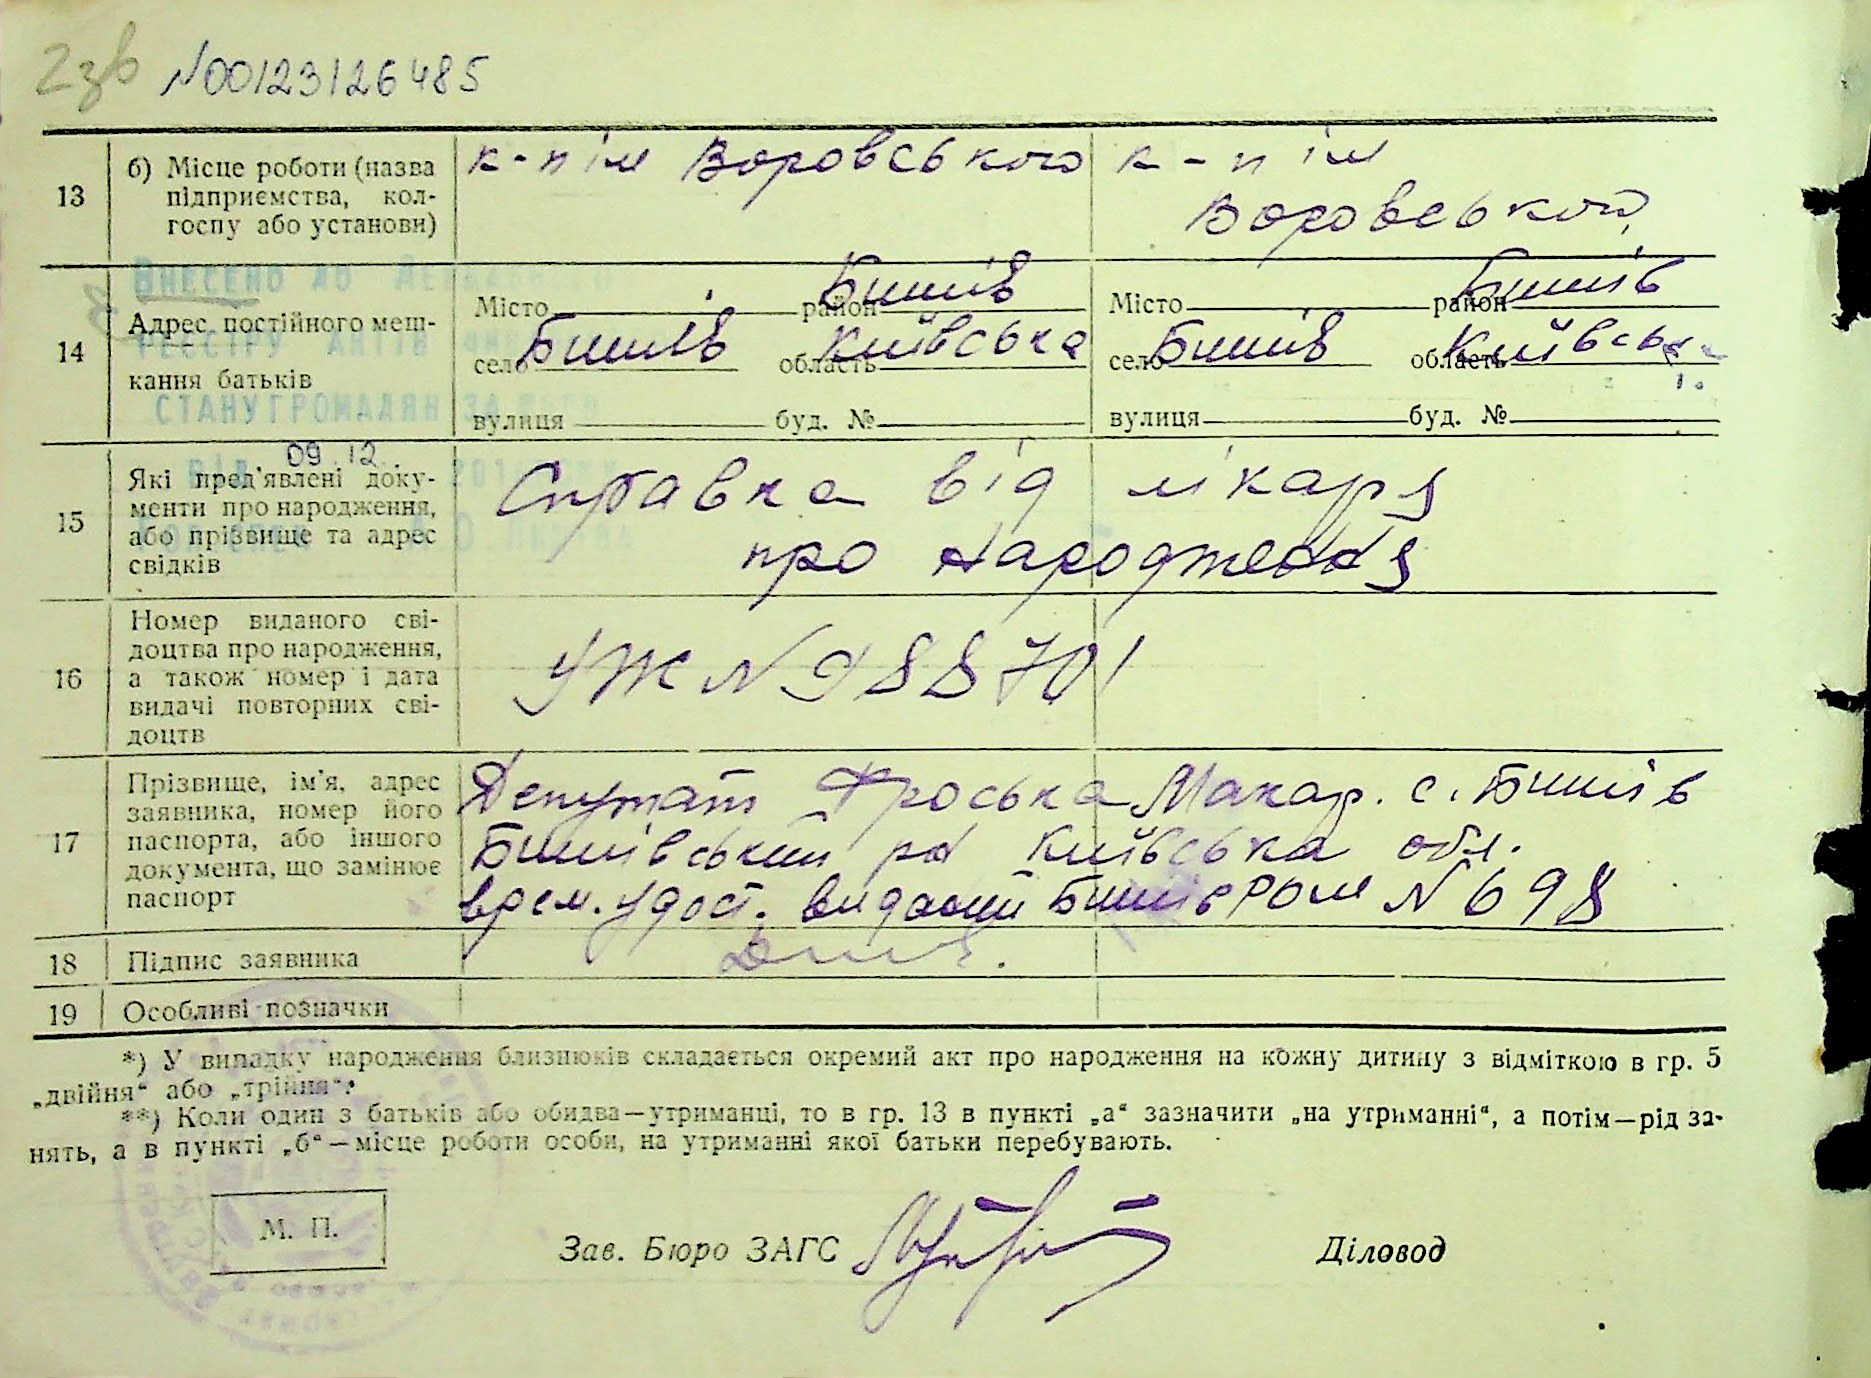 2зв N00123126485
13 б) Місце роботи (назва підприємства, колгоспу або установи)
к-п ім Воровського
к-п ім
Воровського
Внесено до Державного
реєстру актів
стану громадян
від 09.12. 201
14 Адрес постійного мешкання батьків
Місто район Бишів
село Бишів область Київська
вулиця буд. №
Місто район Бишів
село Бишів область Київська
вулиця буд. №
15 Які пред'явлені документи про народження, або прізвище та адрес свідків
Справка від лікаря
про народження
16 Номер виданого свідоцтва про народження, а також номер і дата видачі повторних свідоцтв
УЖ N 988701
17 Прізвище, ім'я, адрес заявника, номер його паспорта, або іншого документа, що замінює паспорт
Депутат Фроська Макар. с. Бишів
Бишівський р-н Київська обл.
врем. удост. видану Бишів РОМ N 698
18 Підпис заявника
19 Особливі позначки
*) У випадку народження близнюків складається окремий акт про народження на кожну дитину з відміткою в гр. 5
„двійня“ або „трійня“.
**) Коли один з батьків або обидва—утриманці, то в гр. 13 в пункті „а“ зазначити „на утриманні“, а потім—рід за-
нять, а в пункті „б“—місце роботи особи, на утриманні якої батьки перебувають.
М. П.
Зав. Бюро ЗАГС
Діловод